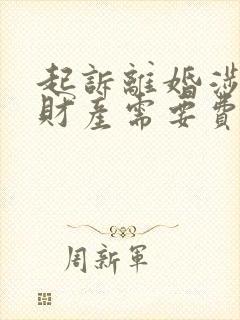 起訴離婚涉
財產需要費
周新軍